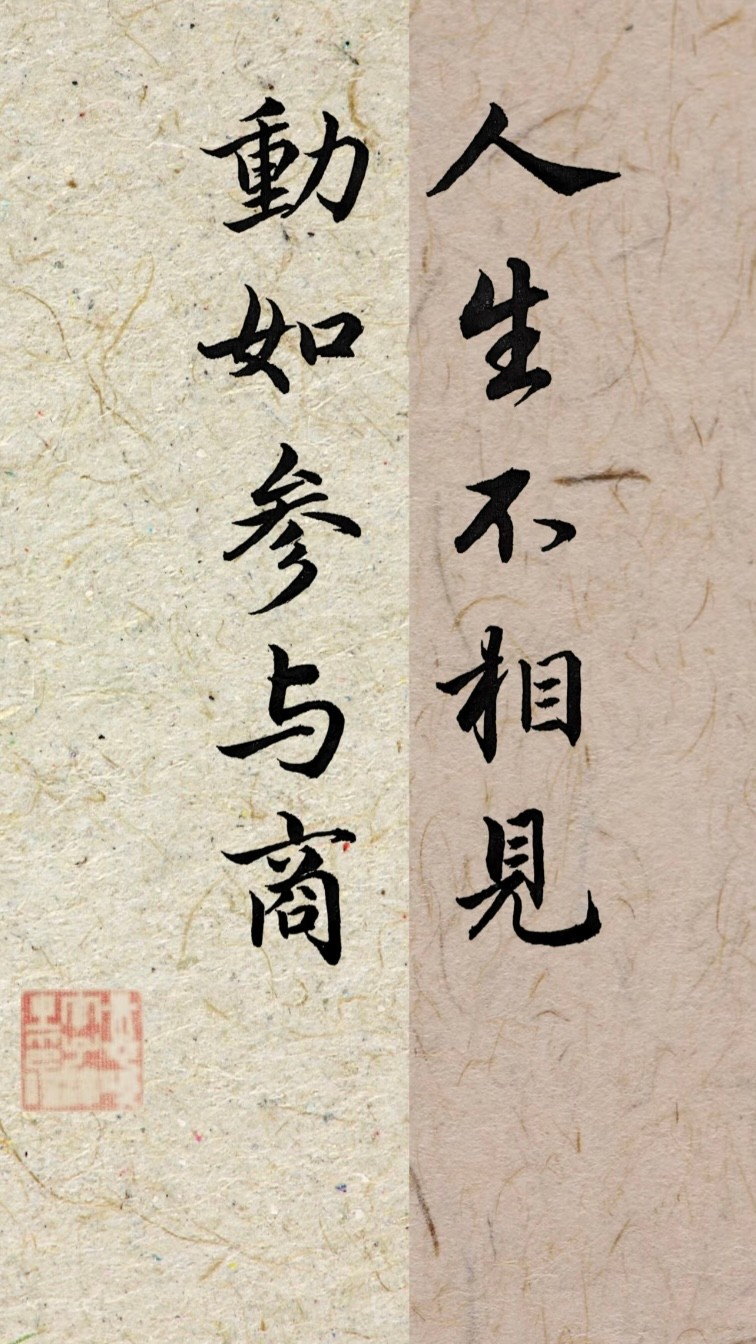 人生不相見
動如参与商